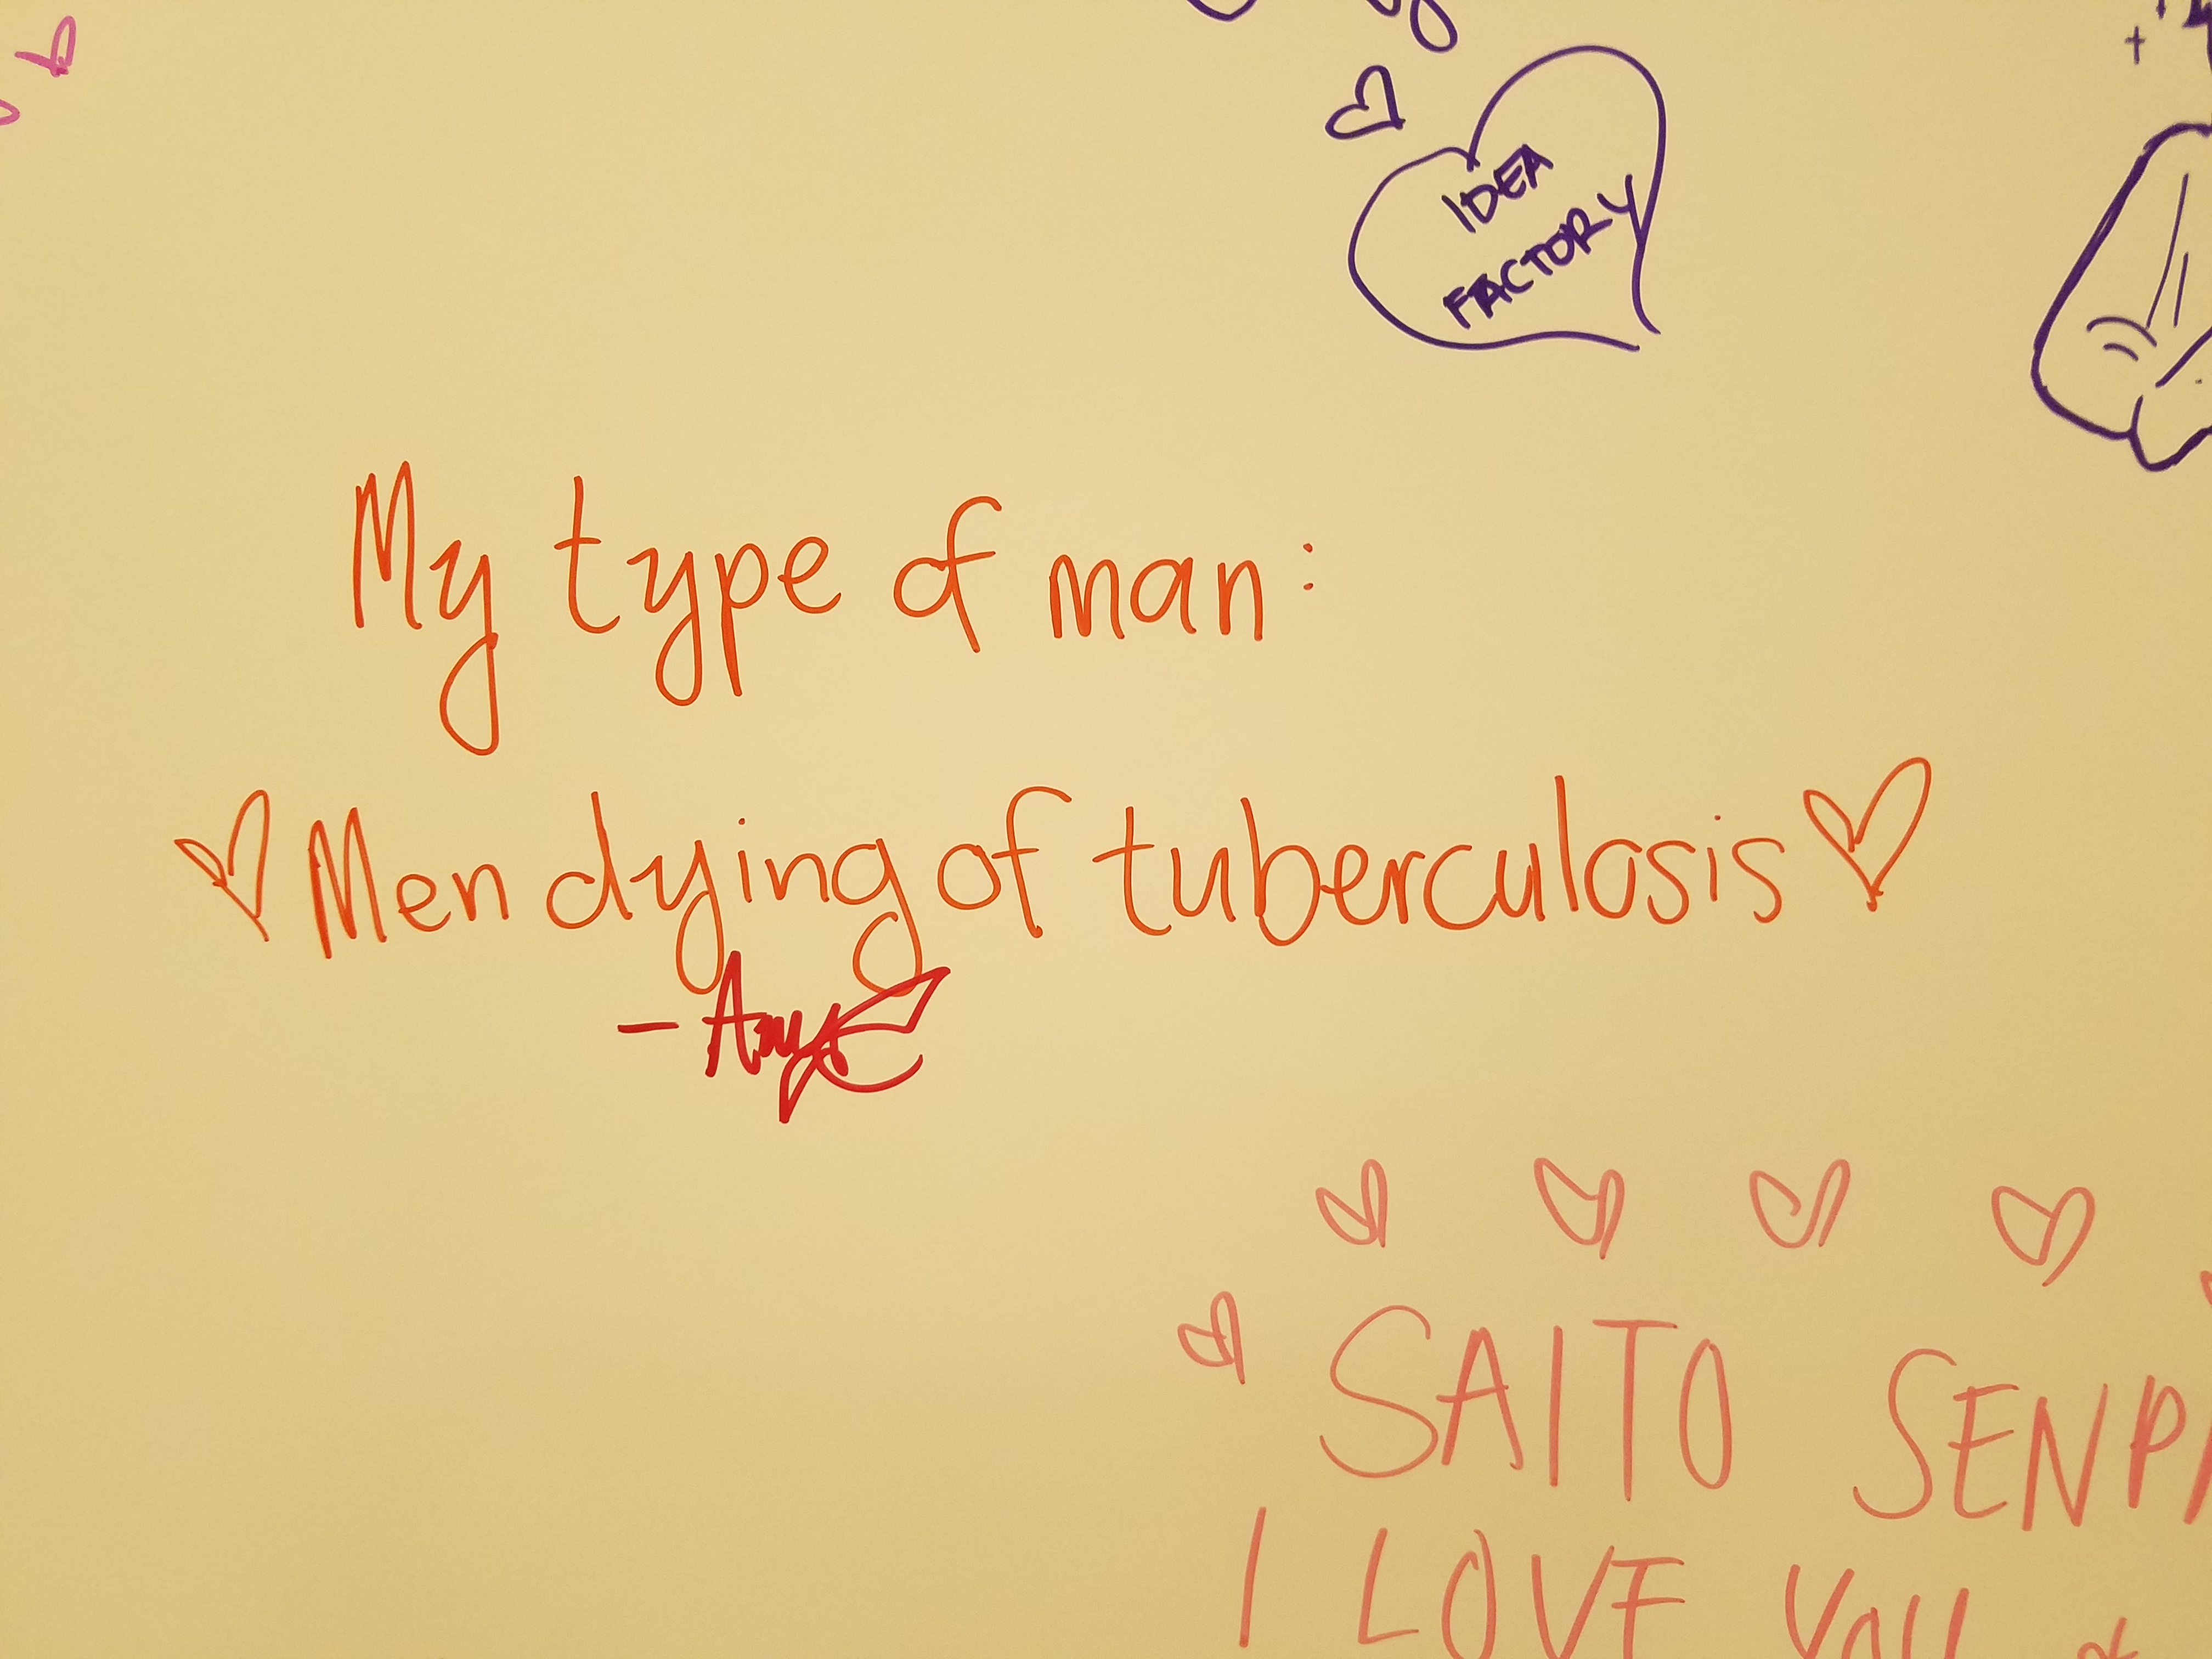 IDEA
FACTORY
My type of man:
Men dying of tuberculosis
SAITO SENPA
I LOVE YOU